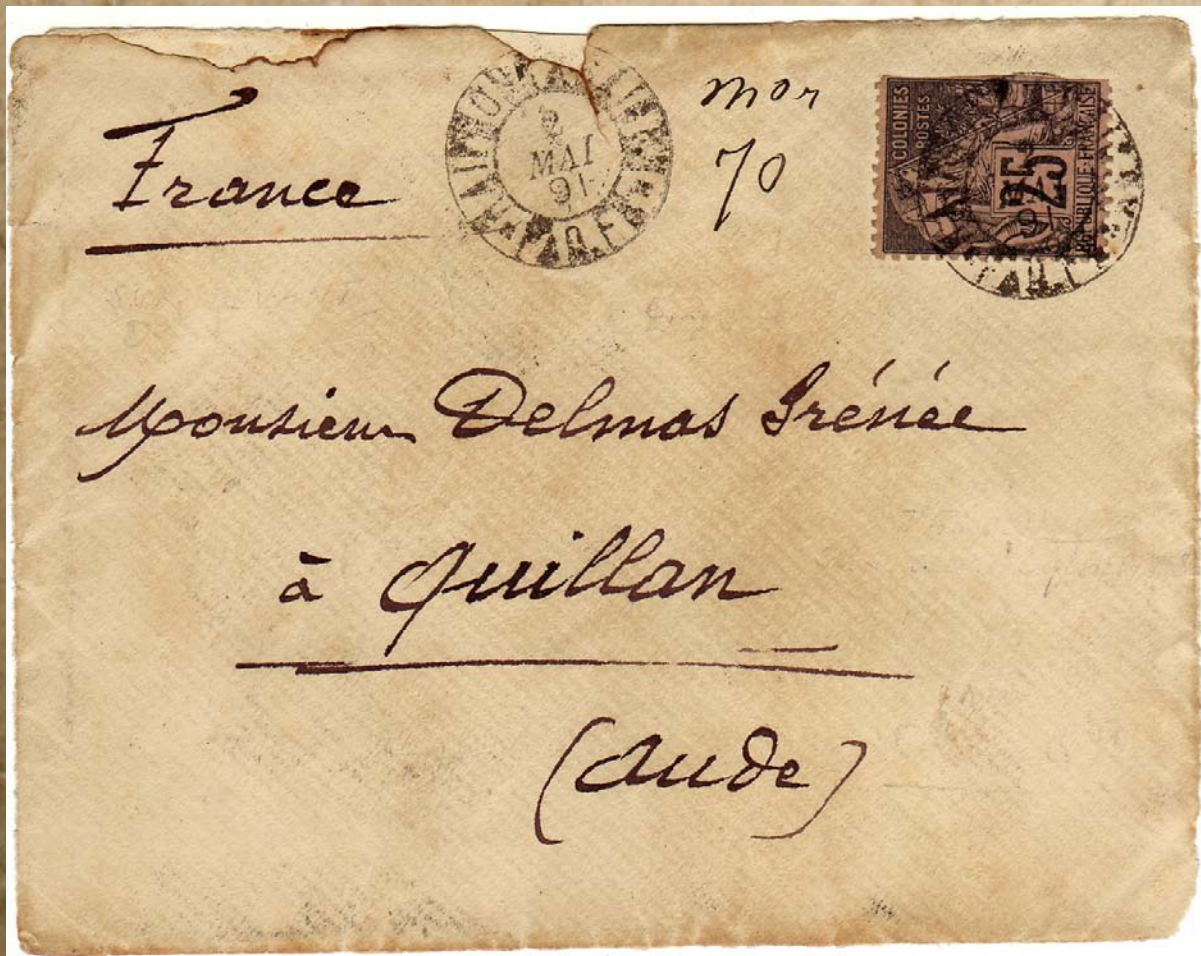 France
2
MAI
91
PAQ. FR
mon
70
COLONIES
POSTES
25
REPUBLIQUE FRANCAISE
Monsieur Delmas Irénée
à Quillan
(Aude)